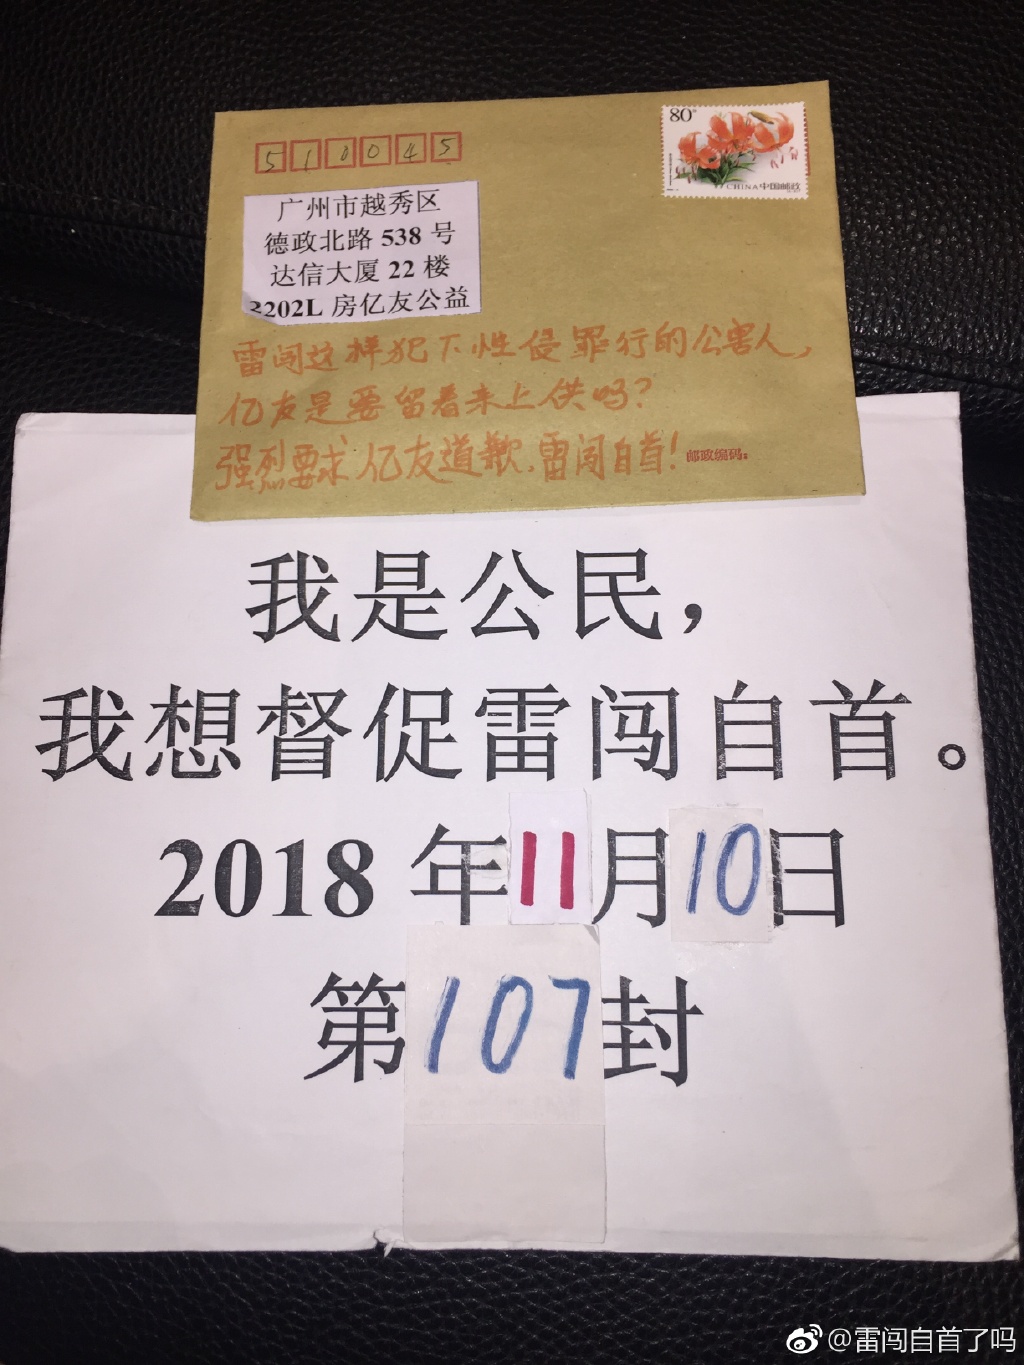 510045
80分
CHINA中国邮政
广州市越秀区
德政北路 538 号
达信大厦 22 楼
3202L 房亿友公益
雷闯这样犯下性侵罪行的公害人，
亿友是要留着来上供吗？
强烈要求亿友道歉，雷闯自首！
邮政编码：
我是公民，
我想督促雷闯自首。
2018 年11月10日
第107封
@雷闯自首了吗